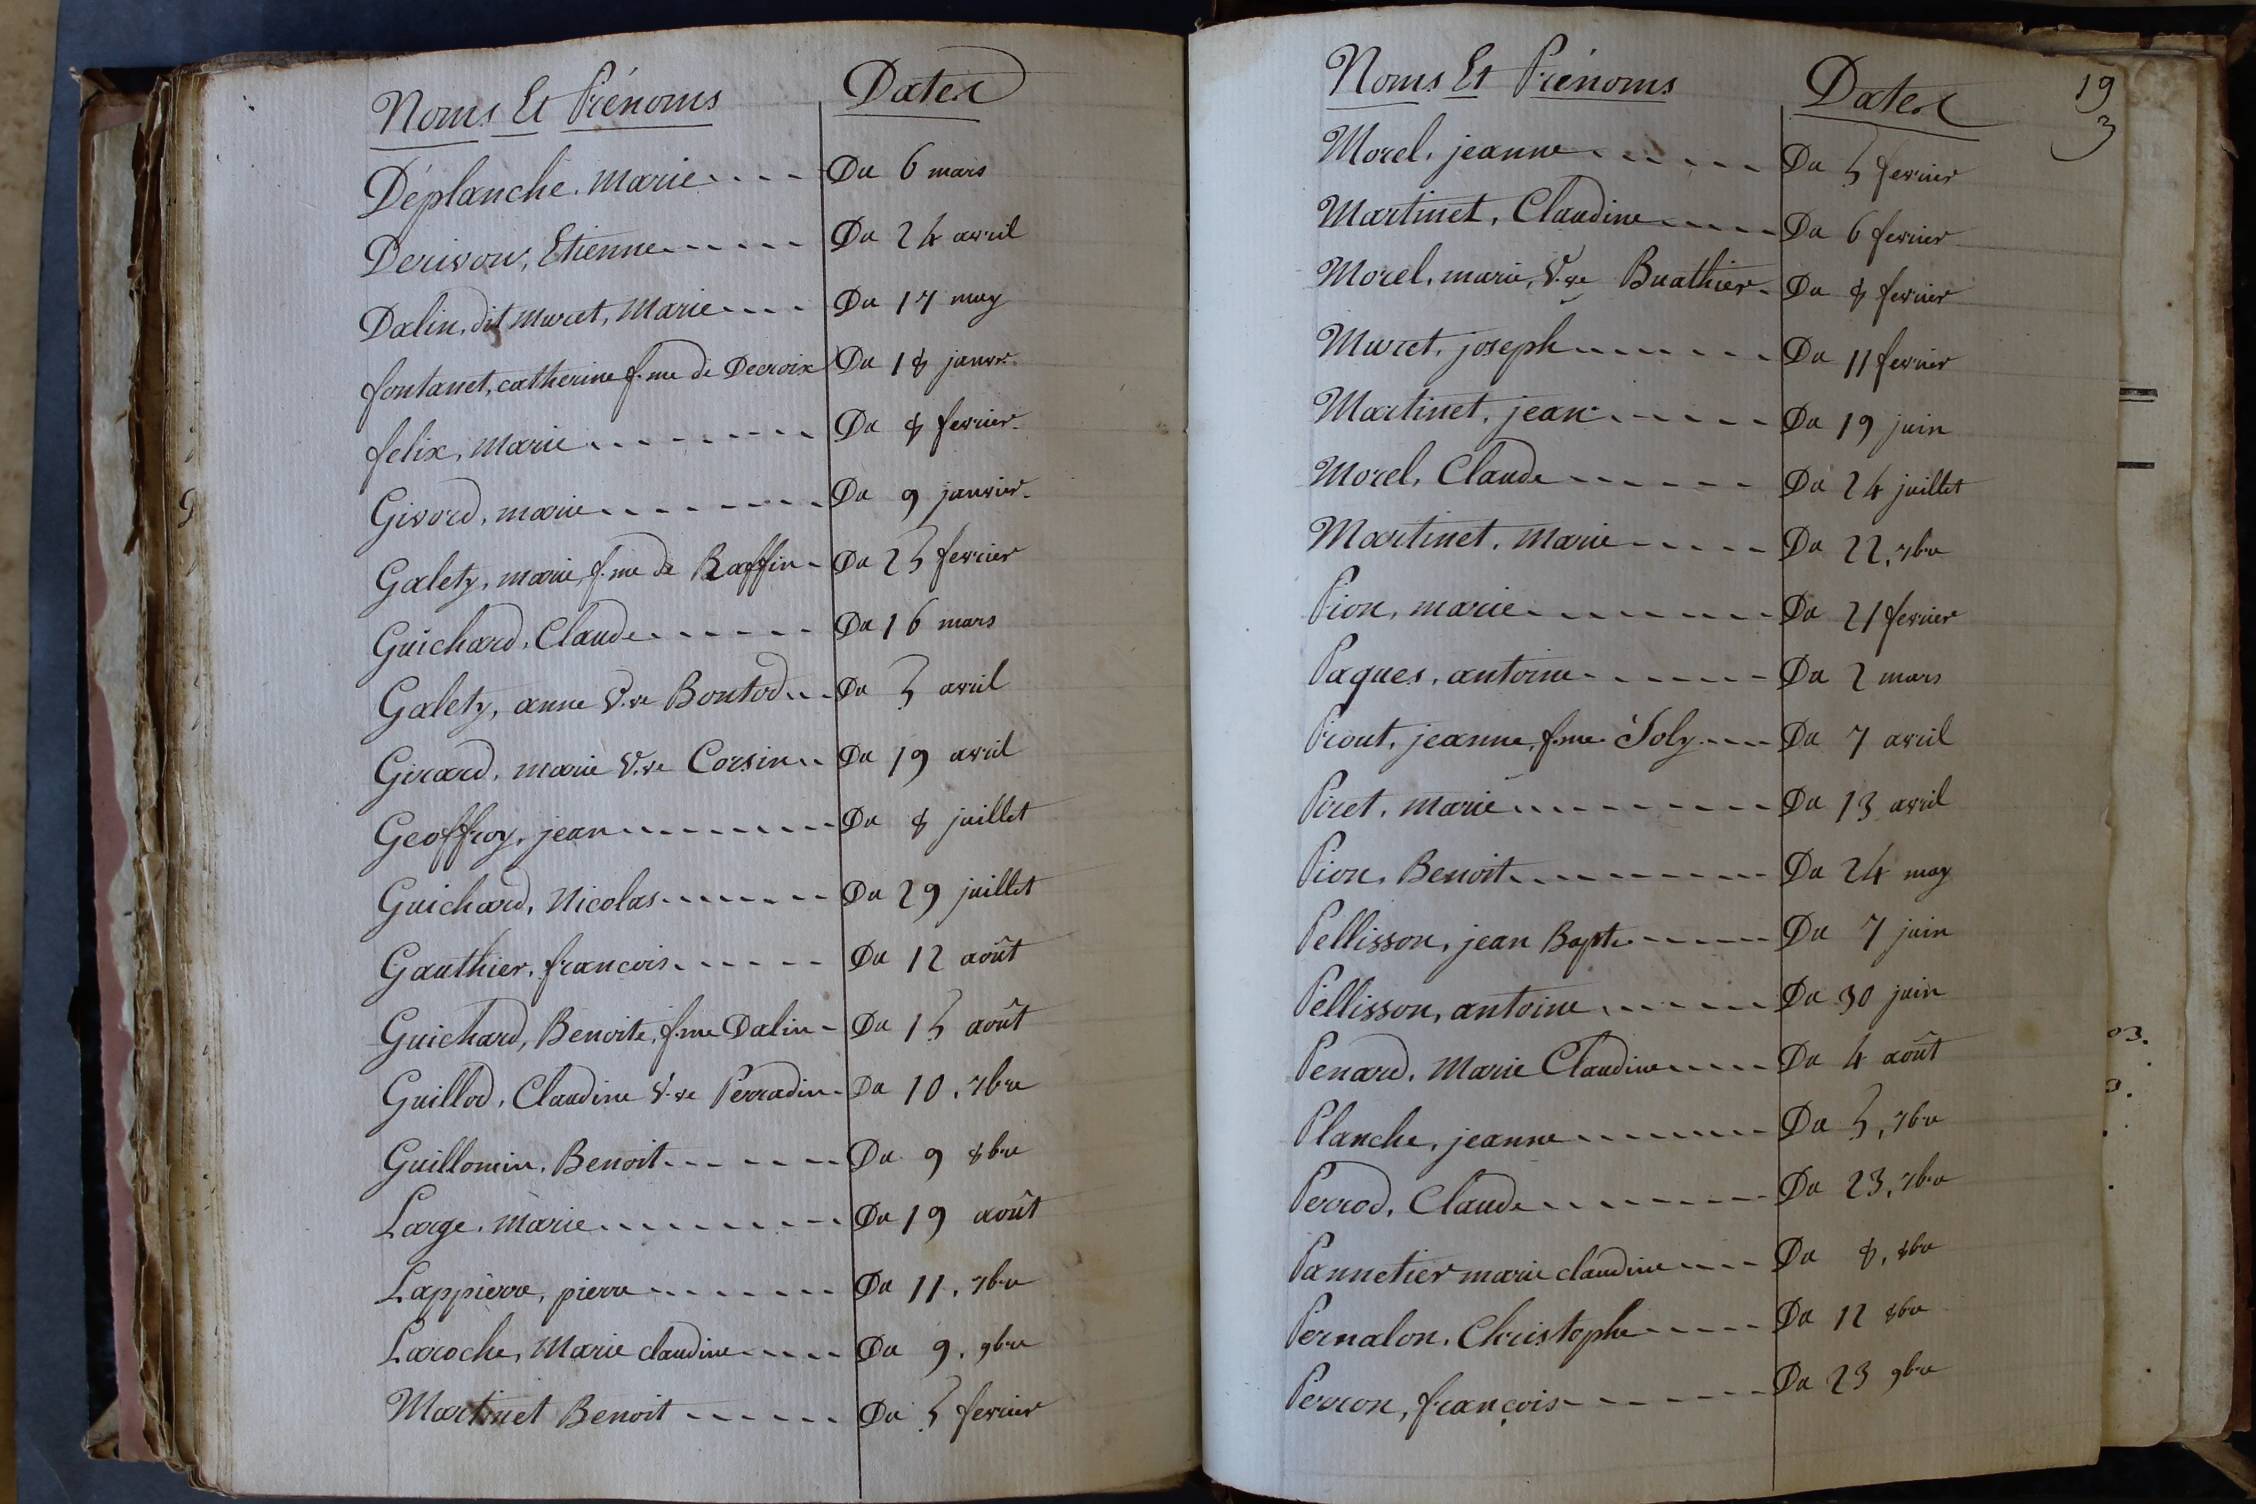 Noms Et Prénoms Dates
Déplanche. Marie Du 6 mars
Derivou, Etienne Du 24 avril
Dalin, dit Muret, Marie Du 17 may
fontanet, catherine f.me de Decroix Du 18 janvr.
felix, Marie Du 8 fevrier.
Givord, marie Du 9 janvier.
Galety, marie, f.me de Raffin Du 25 fevrier
Guichard, Claude Du 16 mars
Galety, anne V.ve Boutod Du 5 avril
Girard, marie V.ve Corsin Du 19 avril
Geoffroy, jean Du 8 juillet
Guichard, Nicolas Du 29 juillet
Gauthier, francois Du 12 août
Guichard, Benoite, f.me Dalin Du 15 août
Guillod, Claudine V.ve Perradin Du 10, 7bre
Guillomin, Benoit Du 9 8bre
Large, Marie Du 19 août
Lappierre, pierre Du 11, 7bre
Laroche, Marie claudine Du 9, 9bre
Martinet Benoit Du 5 fevrier
Noms Et Prénoms Dates 19
3
Morel, jeanne Du 5 fevrier
Martinet, Claudine Du 6 fevrier
Morel, marie, V.ve Buathier Du 8 fevrier
Muret, joseph Du 11 fevrier
Martinet, jean Du 19 juin
Morel, Claude Du 24 juillet
Martinet, Marie Du 22, 7bre
Pion, marie Du 21 fevrier
Paques, antoine Du 2 mars
Prout, jeanne, f.me Joly Du 7 avril
Piret, Marie Du 13 avril
Pion, Benoit Du 24 may
Pellisson, jean Bapte Du 7 juin
Pellisson, antoine Du 30 juin
Penard, Marie Claudine Du 4 août
Planche, jeanne Du 5, 7bre
Perrod, Claude Du 23, 7bre
Pannetier marie claudine Du 8, 8bre
Pernalon, Christophe Du 12 8bre
Perron, françois Du 23 9bre